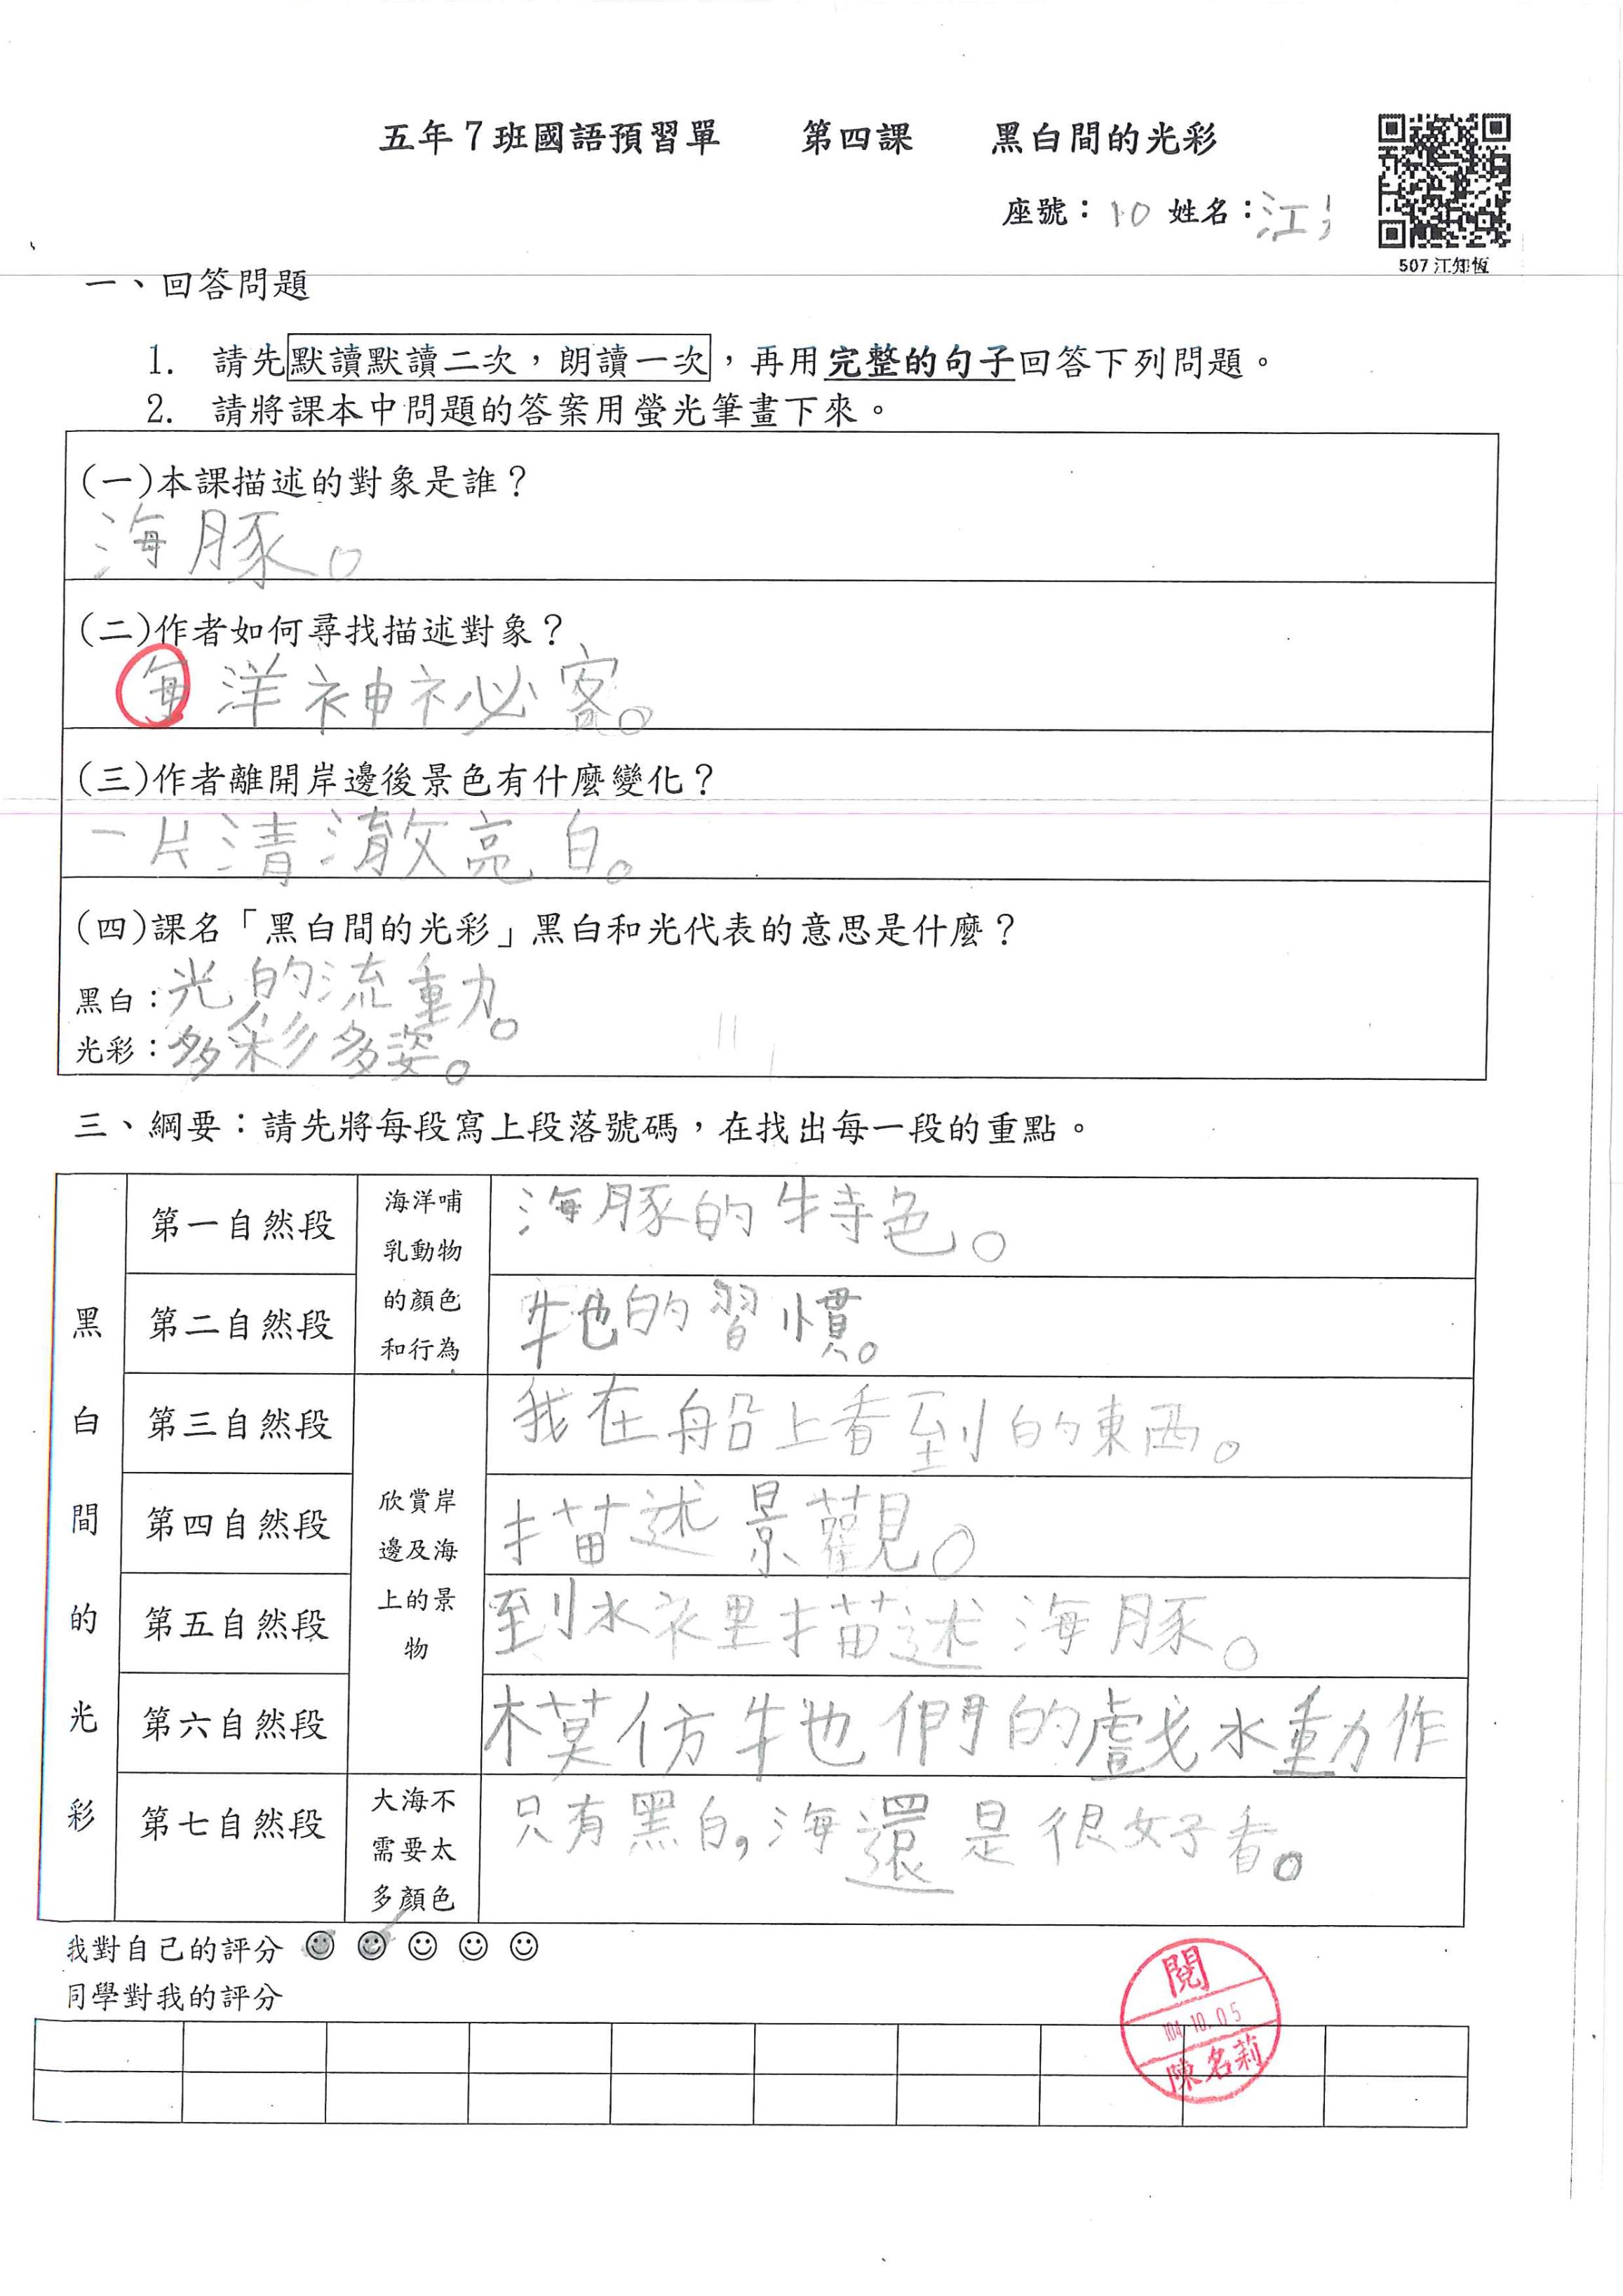 五年7班國語預習單 第四課 黑白間的光彩
座號：10 姓名：江
507 江知恆
一、回答問題
1. 請先默讀默讀二次，朗讀一次，再用完整的句子回答下列問題。
2. 請將課本中問題的答案用螢光筆畫下來。
(一)本課描述的對象是誰？
海豚。
(二)作者如何尋找描述對象？
每洋神祕客。
(三)作者離開岸邊後景色有什麼變化？
一片清澈亮白。
(四)課名「黑白間的光彩」黑白和光代表的意思是什麼？
黑白：光的流動。
光彩：多彩多姿。
三、綱要：請先將每段寫上段落號碼，在找出每一段的重點。
黑白間的光彩
第一自然段
海洋哺乳動物的顏色和行為
海豚的特色。
第二自然段
牠的習慣。
第三自然段
欣賞岸邊及海上的景物
我在船上看到的東西。
第四自然段
描述景觀。
第五自然段
到水裡描述海豚。
第六自然段
模仿牠們的戲水動作
第七自然段
大海不需要太多顏色
只有黑白，海還是很好看。
我對自己的評分 ☺ ☺ ☺ ☺ ☺
同學對我的評分
閱
104.10.05
陳名莉